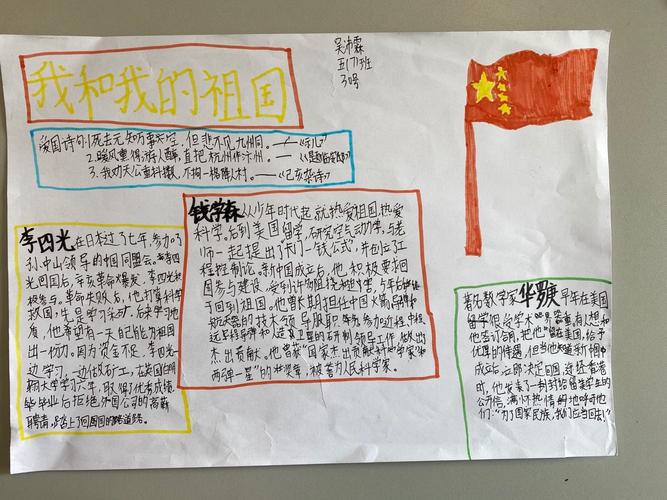 我和我的祖国
吴沛霖
五(7)班
3号
爱国诗句1.死去元知万事空，但悲不见九州同。——《示儿》
2.暖风熏得游人醉，直把杭州作汴州。——
3.我劝天公重抖擞，不拘一格降人材。——《己亥杂诗》
李四光
在日本过了七年，参加了
孙中山领导的中国同盟会。李
光回国后，辛亥革命爆发，李四光积
极参与。革命失败后，他打算科学
救国，
质，他希望有一天自己能为祖国
出一切力。因为资金不足，李四光一
边学习，一边做矿工，在英国伯明
翰大学学习六年，取得优秀成绩
毕业后拒绝外国公司的高薪
聘请，踏上了回国的
钱学森从少年时代起就热爱祖国，热爱
科学。后到美国留学，研究空气动力学，与老
师一起提出了卡门—钱公式，并创立工
程控制论。新中国成立后，他积极要求回
国参与建设，受到许多阻挠和
回到祖国。他曾长期担任中国火箭导弹和
航天器的技术领导
远程导弹和人造卫星的研制领导工作，做出
杰出贡献。他曾获"国家杰出贡献科学家"和
"两弹一星"的 奖章，被誉为人民科学家。
著名数学家华罗庚早年在美国
留学，很受学术界器重，有人想和
他签订合同，把他留在美国，给予
优厚的待遇，但当他知道新中国
成立后，立即决定回国，途经香港
时，他发表了一封给留美学生的
公开信，满怀热情地呼吁他
们："为了国家民族，我们应当回去！"